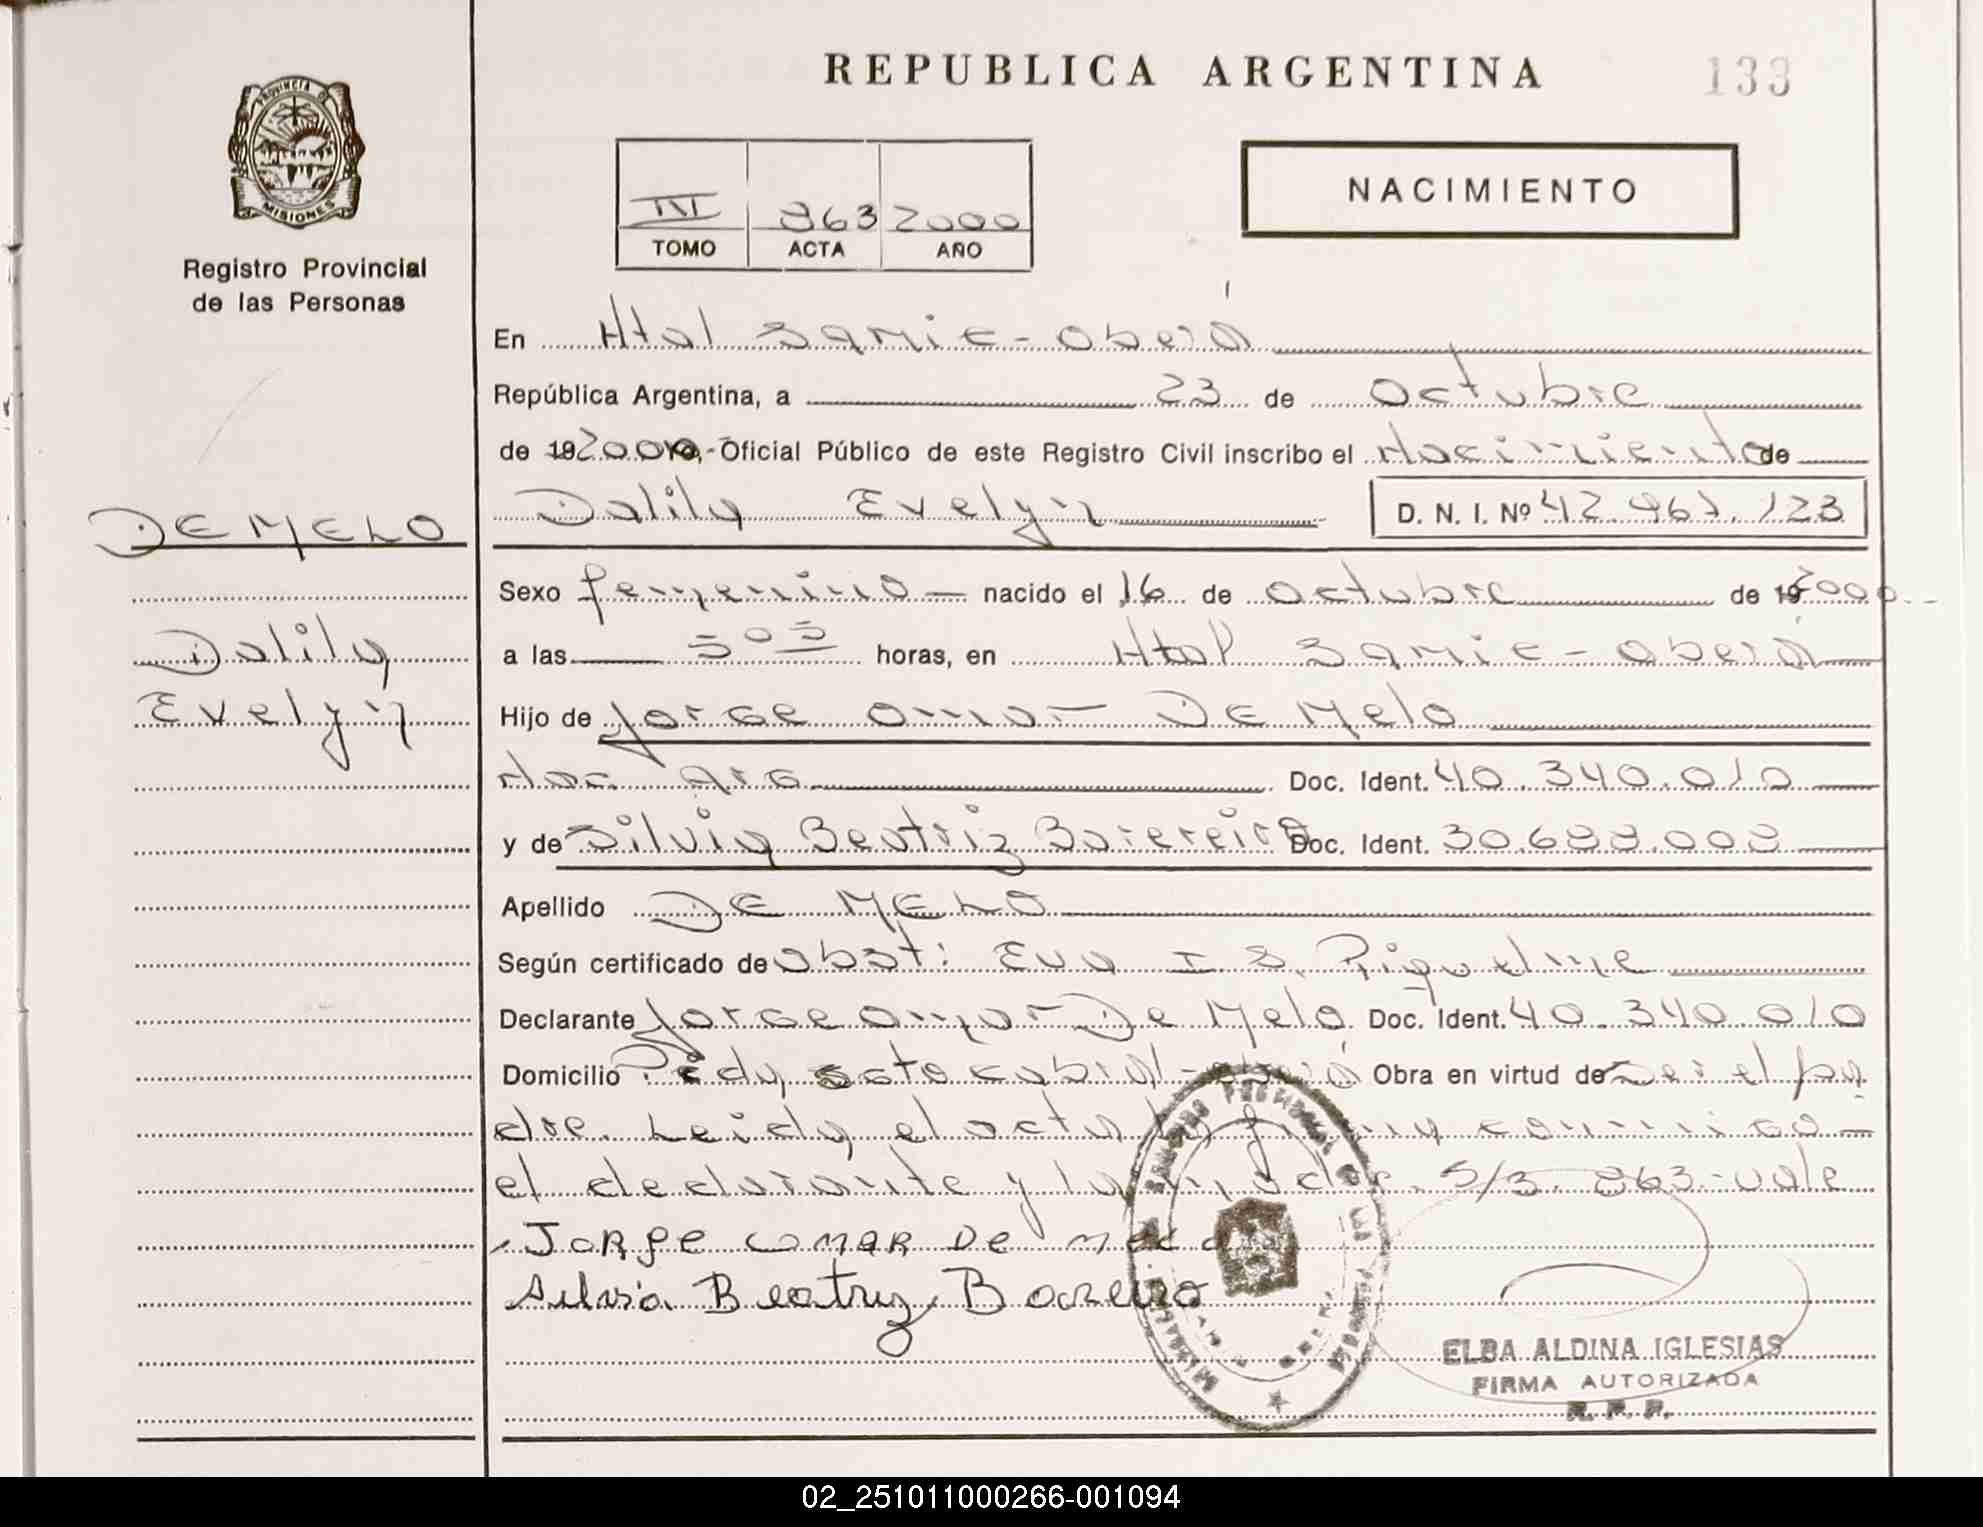 REPUBLICA ARGENTINA
133
PROVINCIA DE
MISIONES
Registro Provincial
de las Personas
III 963 2000
TOMO ACTA AÑO
NACIMIENTO
En Htal Samic - Oberá
República Argentina, a 23 de Octubre
de 192000,- Oficial Público de este Registro Civil inscribo el Nacimiento de
Dalila Evelyn D. N. I. Nº 42.967.123
DE MELO
Sexo femenino nacido el 16 de Octubre de 192000
Dalila
a las 5 05 horas, en Htal Samic - Oberá
Evelyn
Hijo de Jorge Omar De Melo
Nac. Arg Doc. Ident. 40.340.010
y de Silvia Beatriz Doc. Ident.
Apellido DE MELO
Según certificado de Obst: Eva I S. Riquelme
Declarante Jorge Omar De Melo Doc. Ident. 40.340.010
Domicilio Cabral - Oberá Obra en virtud de ser el pa
dre. Leida el acta la firma conmigo
el declarante y la madre. S/B. 963 - vale
JORge OMAR De Melo
Silvia Beatriz Boreiro
ELBA ALDINA IGLESIAS
FIRMA AUTORIZADA
R. P. P.
02_251011000266-001094